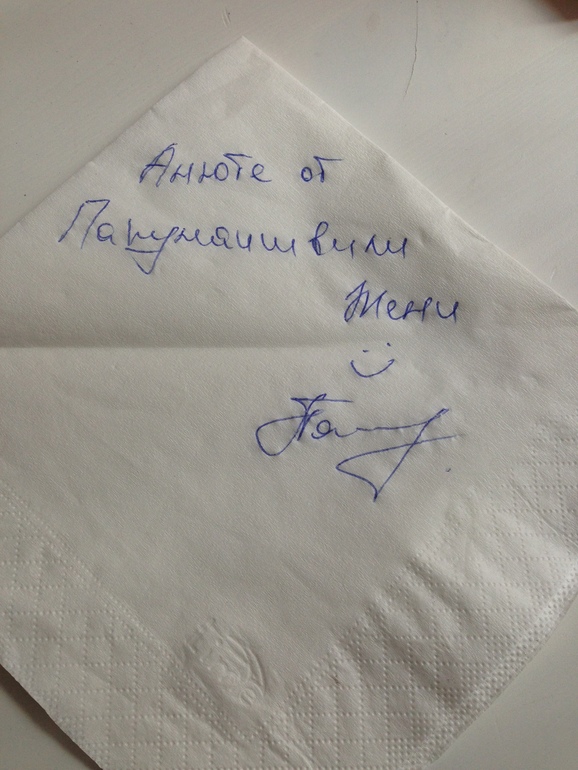 Анюте от
Папунаишвили
Жени